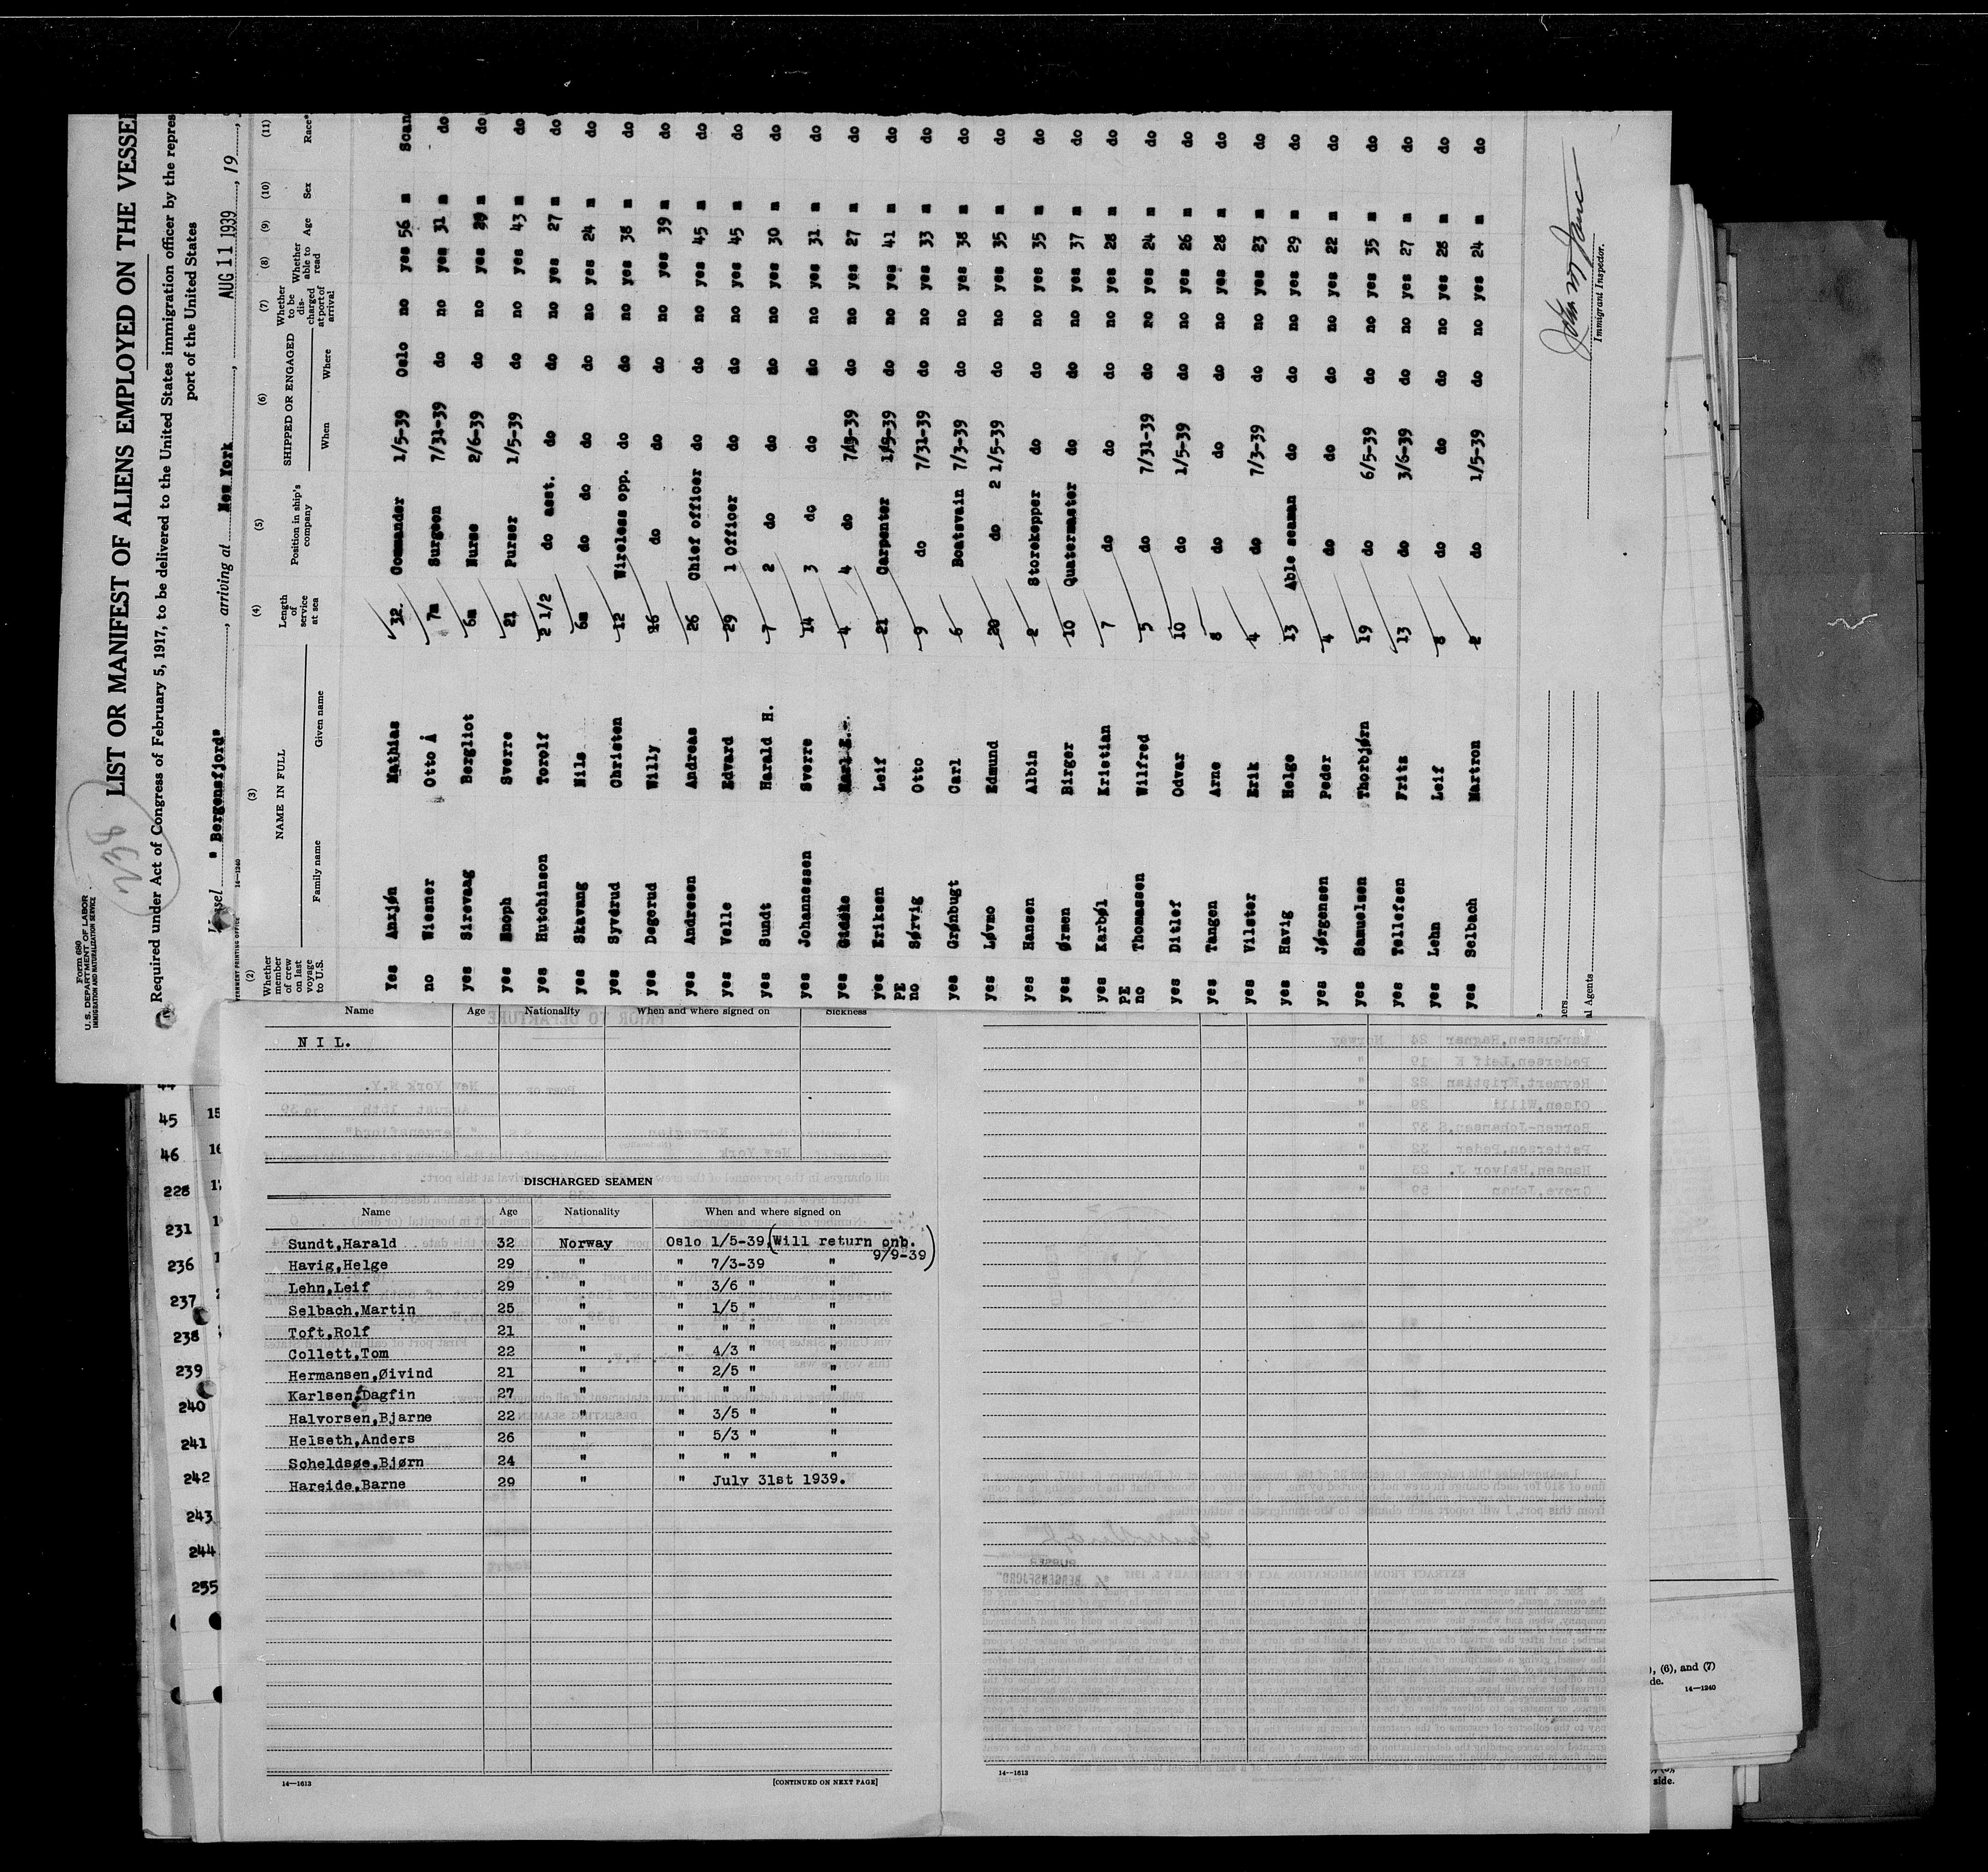 Form 680
U. S. DEPARTMENT OF LABOR
IMMIGRATION AND NATURALIZATION SERVICE
238
LIST OR MANIFEST OF ALIENS EMPLOYED ON THE VESSEL
Required under Act of Congress of February 5, 1917, to be delivered to the United States immigration officer by the repres
port of the United States
Vessel " Bergensfjord" , arriving at New York , AUG 11 1939 , 19
14—1240
(2) (3) (4) (5) (6) (7) (8) (9) (10) (11)
Whether member of crew on last voyage to U.S. NAME IN FULL Length of service at sea Position in ship's company SHIPPED OR ENGAGED Whether to be discharged at port of arrival Whether able to read Age Sex Race*
Family name Given name When Where
Yes Anxjøn Mathias 32 Commander 1/5-39 Oslo no yes 56 m Scan
no Wiesner Otto Å 7m Surgeon 7/31-39 do no yes 31 m do
yes Sirevaag Bergliot 6m Nurse 2/6-39 do no yes 29 m do
yes Enoph Sverre 21 Purser 1/5-39 do no yes 43 m do
yes Hutchinson Torolf 2 1/2 do asst. do do no yes 27 m do
yes Skavang Nils 6m do do do do no yes 24 m do
yes Sydrud Christen 12 Wireless opp. do do no yes 38 m do
yes Degerud Willy 16 do do do no yes 39 m do
yes Andresen Andreas 26 Chief officer do do no yes 45 m do
yes Velle Edvard 29 1 Officer do do no yes 45 m do
yes Sundt Harald H. 7 2 do do do no yes 30 m do
yes Johannessen Sverre 14 3 do do do no yes 31 m do
yes 4 4 do 7/3-39 do no yes 27 m do
yes Eriksen Leif 21 Carpenter 1/5-39 do no yes 41 m do
PE
no Sørvig Otto 9 do 7/31-39 do no yes 33 m do
yes Grønbugt Carl 6 Boatsvain 7/3-39 do no yes 38 m do
yes Løvmo Edmund 20 do 2 1/5-39 do no yes 35 m do
yes Hansen Albin 2 Storekepper do do no yes 35 m do
yes Ørmen Birger 10 Quatermaster do do no yes 37 m do
yes Karbøl Kristian 7 do do do no yes 28 m do
PE
no Thomassen Wilfred 5 do 7/31-39 do no yes 24 m do
yes Ditlef Odvar 10 do 1/5-39 do no yes 26 m do
yes Tangen Arne 8 do do do no yes 28 m do
yes Vilster Erik 4 do 7/3-39 do no yes 23 m do
yes Havig Helge 13 Able seaman do do no yes 29 m do
yes Jørgensen Peder 4 do do do no yes 22 m do
yes Samuelsen Thorbjørn 19 do 6/5-39 do no yes 35 m do
yes Tellefsen Fritz 13 do 3/6-39 do no yes 27 m do
yes Lehn Leif 8 do do do no yes 28 m do
yes Selbach Martron 2 do 1/5-39 do no yes 24 m do
Immigrant Inspector.
al Agents
Name Age Nationality When and where signed on Sickness
N I L.
DISCHARGED SEAMEN
Name Age Nationality When and where signed on
Sundt,Harald 32 Norway Oslo 1/5-39 (Will return onb.
9/9-39)
Havig,Helge 29 " " 7/3-39 "
Lehn,Leif 29 " " 3/6 " "
Selbach,Martin 25 " " 1/5 " "
Toft,Rolf 21 " " " " "
Collett,Tom 22 " " 4/3 " "
Hermansen,Øivind 21 " " 2/5 " "
Karlsen,Dagfin 27 " " " " "
Halvorsen,Bjarne 22 " " 3/5 " "
Helseth,Anders 26 " " 5/3 " "
Scheldsøe,Bjørn 24 " " " " "
Hareide,Barne 29 " " July 31st 1939.
14—1613 [CONTINUED ON NEXT PAGE]
14—1613
44
45 15
46 16
228
231
236
237
238
239
240
241
242
243
244
255
, (6), and (7)
de.
14—1240
side.